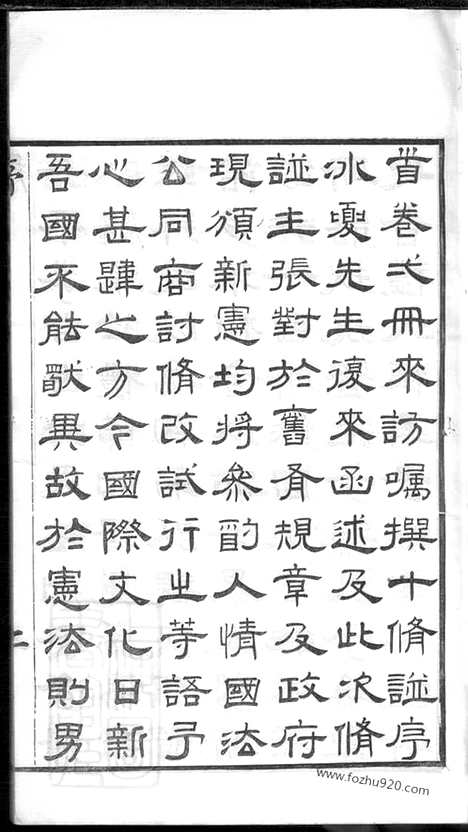 首卷弍冊來訪嘱撰十脩譜序
冰夔先生復來函述及此次脩
譜主張對於舊有規章及政府
現頒新憲均將參酌人情國法
公同商討脩改試行之等語予
心甚韙之方今國際文化日新
吾國不能獨異故於憲法則男
序
www.fozhu920.com